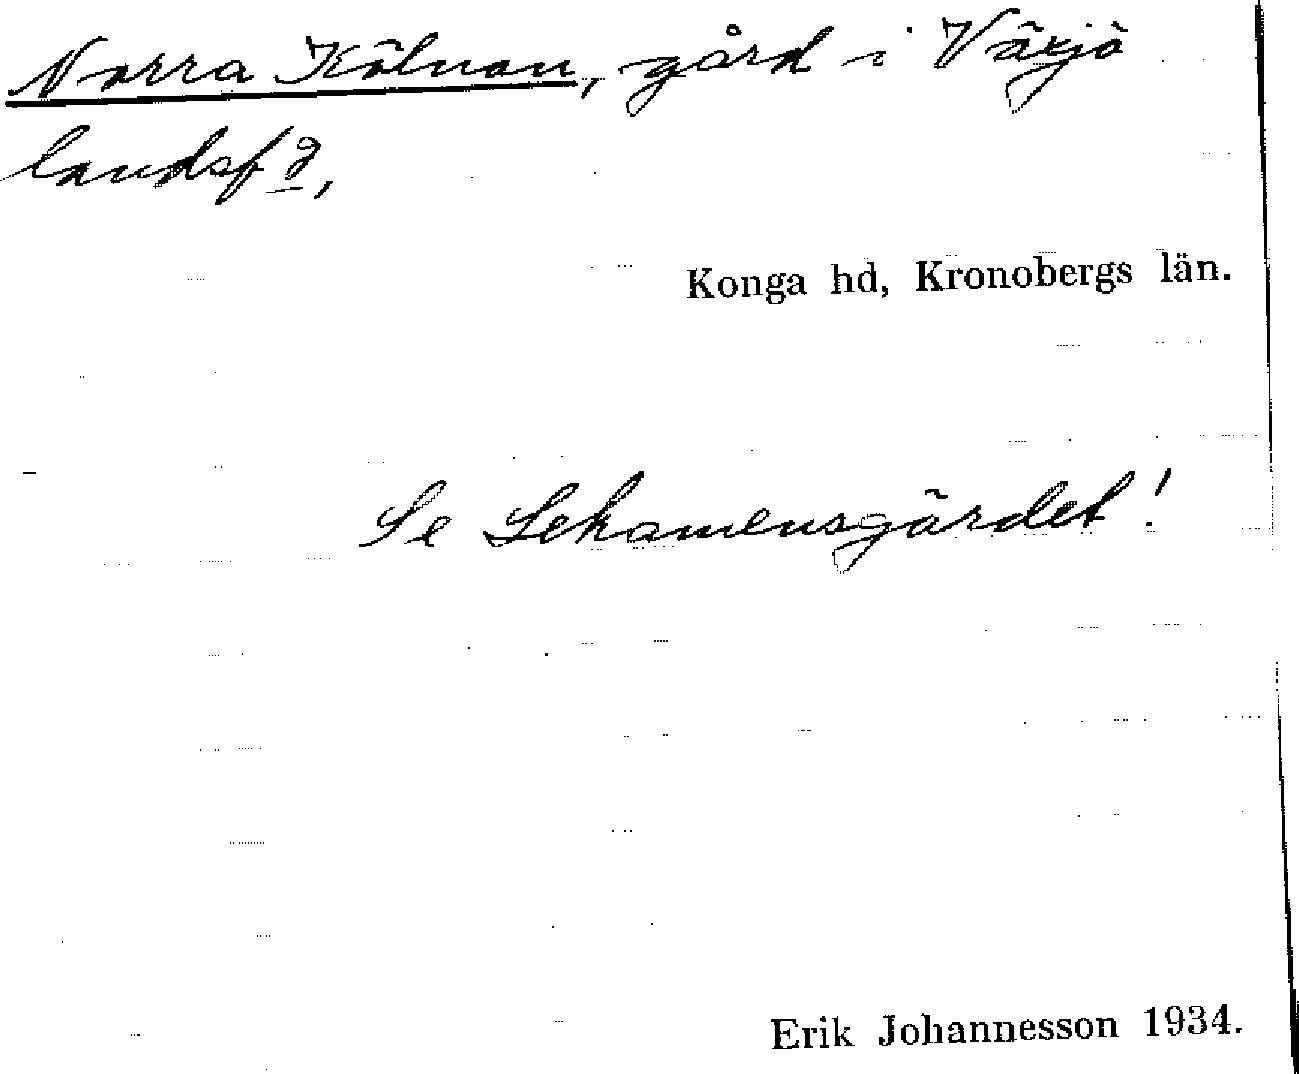 Norra Kölnan, gård i Växjö
landsf d,
Konga hd, Kronobergs län.
Se Lekamensgärdet!
Erik Johannesson 1934.